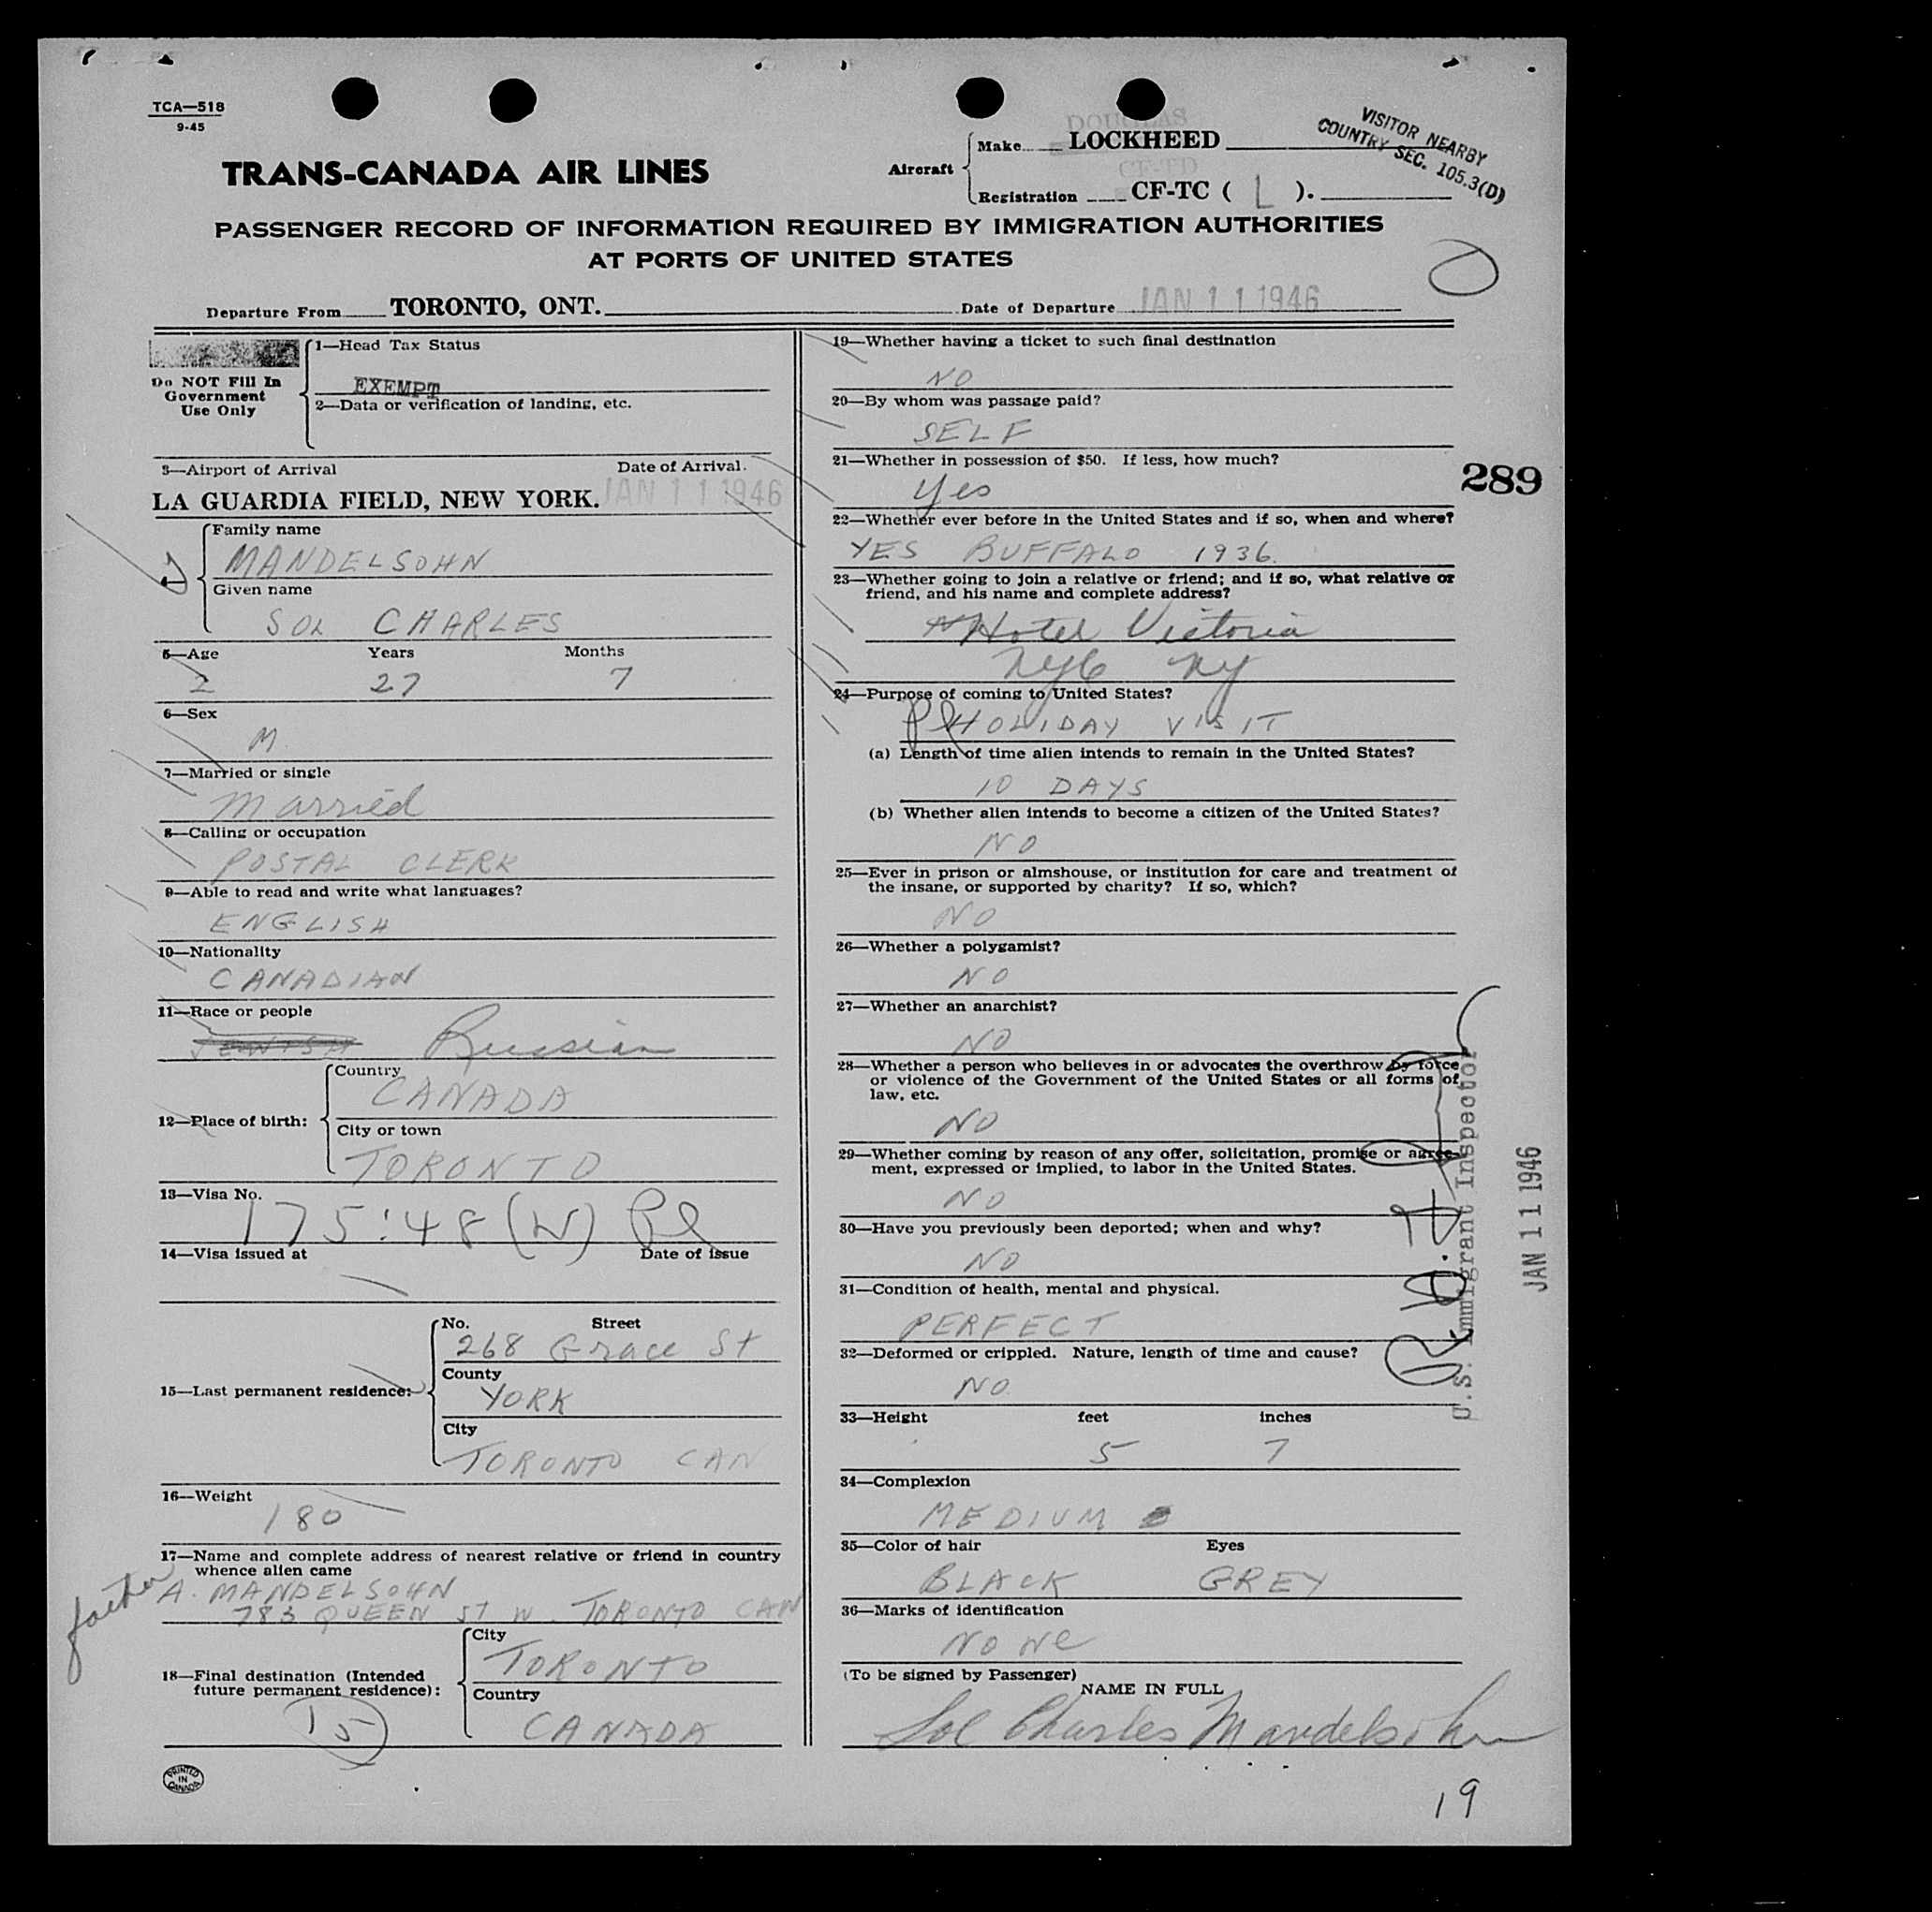 TCA—518
9-45
TRANS-CANADA AIR LINES
DOUGLAS
Aircraft
Make LOCKHEED
CF-TD
Registration CF-TC ( L ).
VISITOR NEARBY
COUNTRY SEC. 105.3(D)
PASSENGER RECORD OF INFORMATION REQUIRED BY IMMIGRATION AUTHORITIES
AT PORTS OF UNITED STATES
Departure From TORONTO, ONT. Date of Departure JAN 11 1946
Do NOT Fill In
Government
Use Only
1—Head Tax Status
EXEMPT
2—Data or verification of landing, etc.
3—Airport of Arrival Date of Arrival.
LA GUARDIA FIELD, NEW YORK. JAN 11 1946
Family name
MANDELSOHN
Given name
SOL CHARLES
5—Age Years Months
27 7
6—Sex
M
7—Married or single
Married
8—Calling or occupation
POSTAL CLERK
9—Able to read and write what languages?
ENGLISH
10—Nationality
CANADIAN
11—Race or people
JEWISH Russian
12—Place of birth:
Country
CANADA
City or town
TORONTO
13—Visa No.
175:48 (W)
14—Visa issued at Date of issue
15—Last permanent residence:
No. Street
268 Grace St
County
YORK
City
TORONTO CAN
16—Weight
180
17—Name and complete address of nearest relative or friend in country
whence alien came
father
A. MANDELSOHN
783 QUEEN ST W. TORONTO CAN
18—Final destination (Intended
future permanent residence):
City
TORONTO
Country
CANADA
15
PRINTED
IN
CANADA
19—Whether having a ticket to such final destination
NO
20—By whom was passage paid?
SELF
21—Whether in possession of $50. If less, how much?
Yes
289
22—Whether ever before in the United States and if so, when and where?
YES BUFFALO 1936.
23—Whether going to join a relative or friend; and if so, what relative or
friend, and his name and complete address?
Hotel Victoria
NYC NY
24—Purpose of coming to United States?
HOLIDAY VISIT
(a) Length of time alien intends to remain in the United States?
10 DAYS
(b) Whether alien intends to become a citizen of the United States?
NO
25—Ever in prison or almshouse, or institution for care and treatment of
the insane, or supported by charity? If so, which?
NO
26—Whether a polygamist?
NO
27—Whether an anarchist?
NO
28—Whether a person who believes in or advocates the overthrow by force
or violence of the Government of the United States or all forms of
law, etc.
NO
29—Whether coming by reason of any offer, solicitation, promise or agree-
ment, expressed or implied, to labor in the United States.
NO
30—Have you previously been deported; when and why?
NO
31—Condition of health, mental and physical.
PERFECT
32—Deformed or crippled. Nature, length of time and cause?
NO
33—Height feet inches
5 7
34—Complexion
MEDIUM
35—Color of hair Eyes
BLACK GREY
36—Marks of identification
NONE
(To be signed by Passenger)
NAME IN FULL
Sol Charles Mandelsohn
U.S. Immigrant Inspector
JAN 11 1946
19